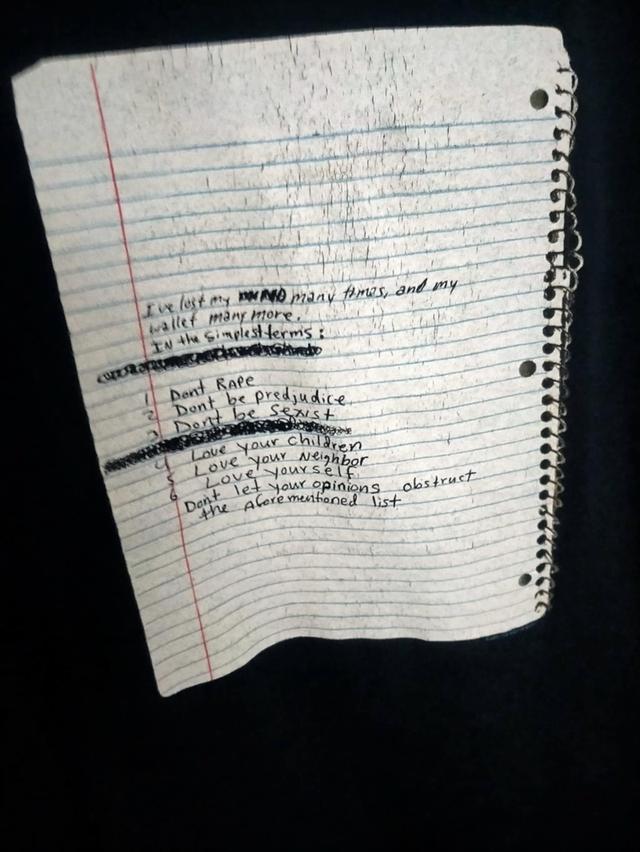 I've lost my MIND many times, and my
wallet many more.
IN the simplest terms:
1 Dont RAPE
2 Dont be predjudice
3 Dont be Sexist
4 Love your children
5 Love your Neighbor
6 Love yourself
Dont let your opinions obstruct
the Aforementioned list